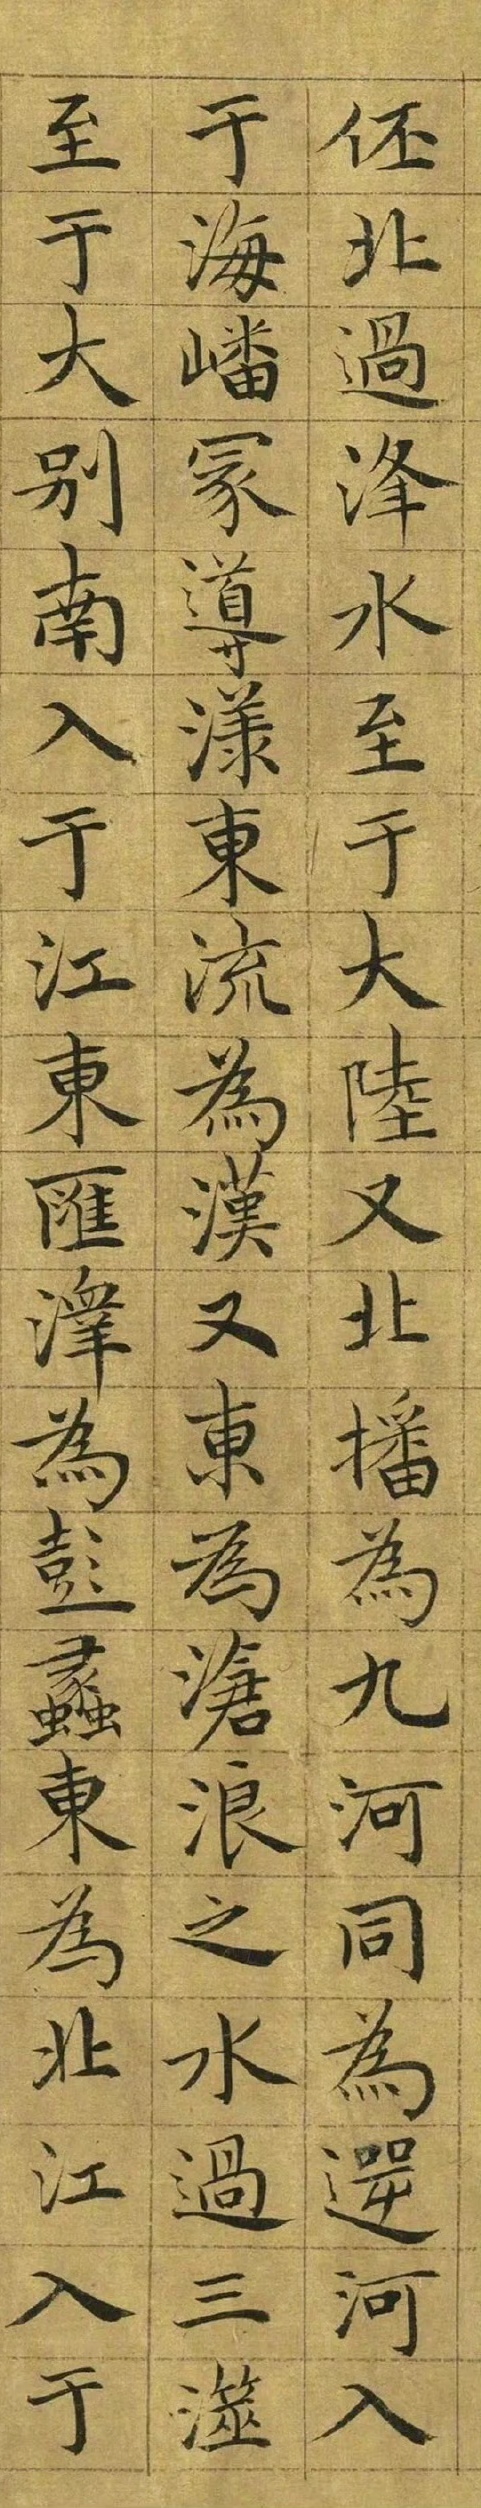 伾北過洚水至于大陸又北播為九河同為逆河入
于海嶓冢導漾東流為漢又東為滄浪之水過三澨
至于大別南入于江東匯澤為彭蠡東為北江入于